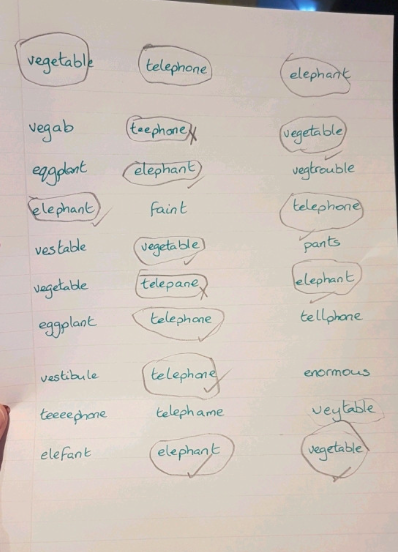 vegetable telephone elephant
vegab teephone vegetable
eggplant elephant vegtrouble
elephant faint telephone
vestable vegetable pants
vegetable telepane elephant
eggplant telephone tellphone
vestibule telephone enormous
teeeephone telephame veytable
elefant elephant vegetable